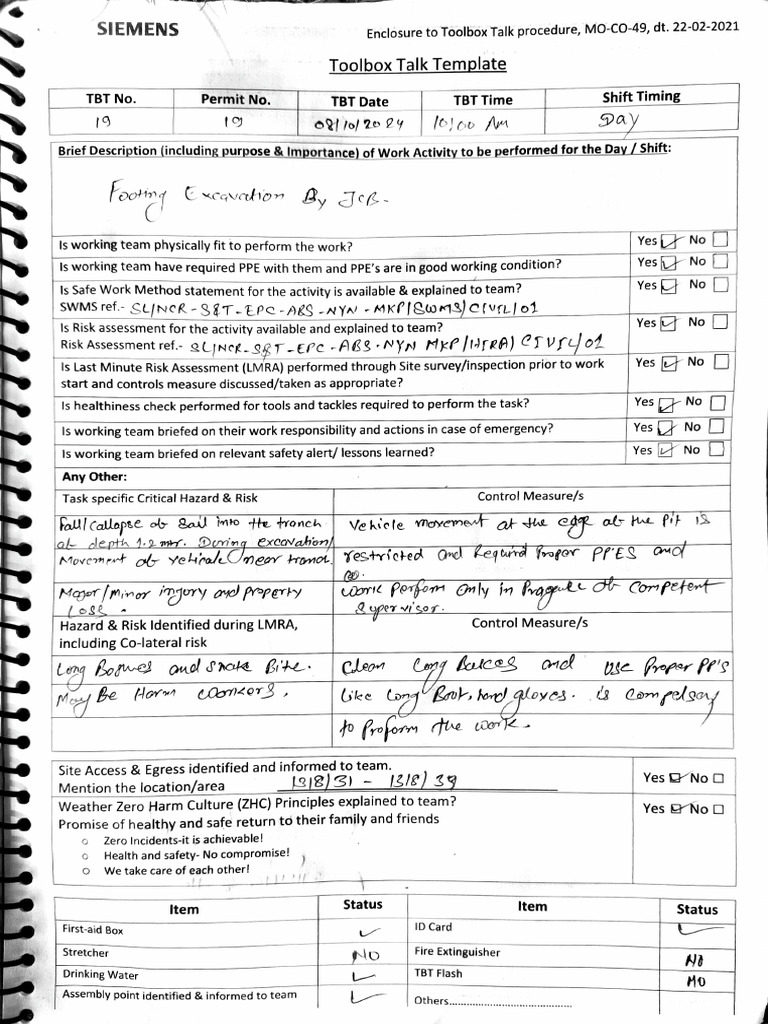 SIEMENS
Enclosure to Toolbox Talk procedure, MO-CO-49, dt. 22-02-2021
Toolbox Talk Template
TBT No. Permit No. TBT Date TBT Time Shift Timing
19 19 08/10/2024 10:00 AM Day
Brief Description (including purpose & Importance) of Work Activity to be performed for the Day / Shift:
Footing Excavation By JCB-
Is working team physically fit to perform the work? Yes ✓ No
Is working team have required PPE with them and PPE's are in good working condition? Yes ✓ No
Is Safe Work Method statement for the activity is available & explained to team? Yes ✓ No
SWMS ref.- SL/NCR-S&T-EPC-ABS-NYN-MKP/SWMS/CIVIL/01
Is Risk assessment for the activity available and explained to team? Yes ✓ No
Risk Assessment ref.- SL/NCR-S&T-EPC-ABS-NYN MKP/HIRA/CIVIL/01
Is Last Minute Risk Assessment (LMRA) performed through Site survey/inspection prior to work Yes ✓ No
start and controls measure discussed/taken as appropriate?
Is healthiness check performed for tools and tackles required to perform the task? Yes ✓ No
Is working team briefed on their work responsibility and actions in case of emergency? Yes ✓ No
Is working team briefed on relevant safety alert/ lessons learned? Yes ✓ No
Any Other:
Task specific Critical Hazard & Risk Control Measure/s
Fall/Callopse of Sail into the tranch Vehicle movement at the edge of the pit is
at depth 1.2 mtr. During excavation/
Movement of vehicale near tranch. restricted and Required Proper PP'ES and
Major/minor injury and property work perform only in of competent
Loss. Supervisor.
Hazard & Risk Identified during LMRA, Control Measure/s
including Co-lateral risk
Long and snake Bite. Clean Long and use Proper PP's
May Be Harm workers. like Long Boot, hand gloves. is compelsory
to Proform the work.
Site Access & Egress identified and informed to team. Yes ✓ No
Mention the location/area 1318/31 - 1318/39
Weather Zero Harm Culture (ZHC) Principles explained to team? Yes ✓ No
Promise of healthy and safe return to their family and friends
o Zero Incidents-it is achievable!
o Health and safety- No compromise!
o We take care of each other!
Item Status Item Status
First-aid Box ✓ ID Card ✓
Stretcher NO Fire Extinguisher NO
Drinking Water ✓ TBT Flash NO
Assembly point identified & informed to team ✓ Others...............................